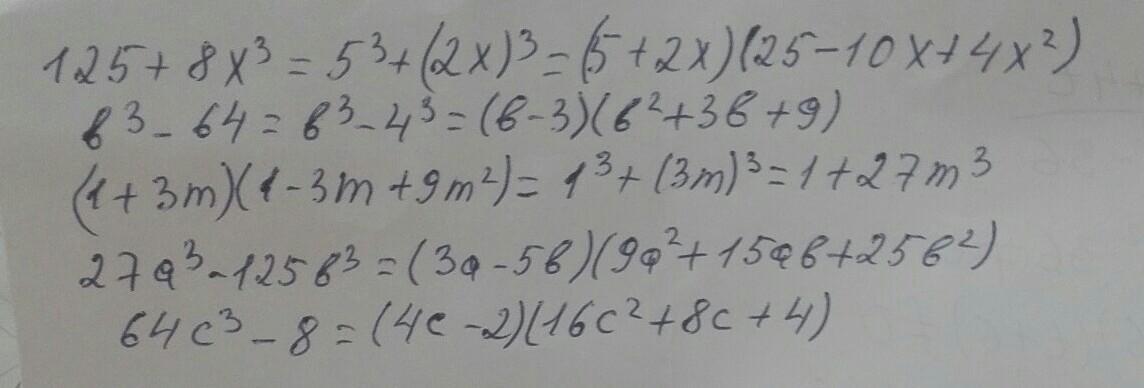 125 + 8x³ = 5³ + (2x)³ = (5 + 2x)(25 - 10x + 4x²)
в³ - 64 = в³ - 4³ = (в - 3)(в² + 3в + 9)
(1 + 3m)(1 - 3m + 9m²) = 1³ + (3m)³ = 1 + 27m³
27a³ - 125в³ = (3a - 5в)(9a² + 15aв + 25в²)
64c³ - 8 = (4c - 2)(16c² + 8c + 4)